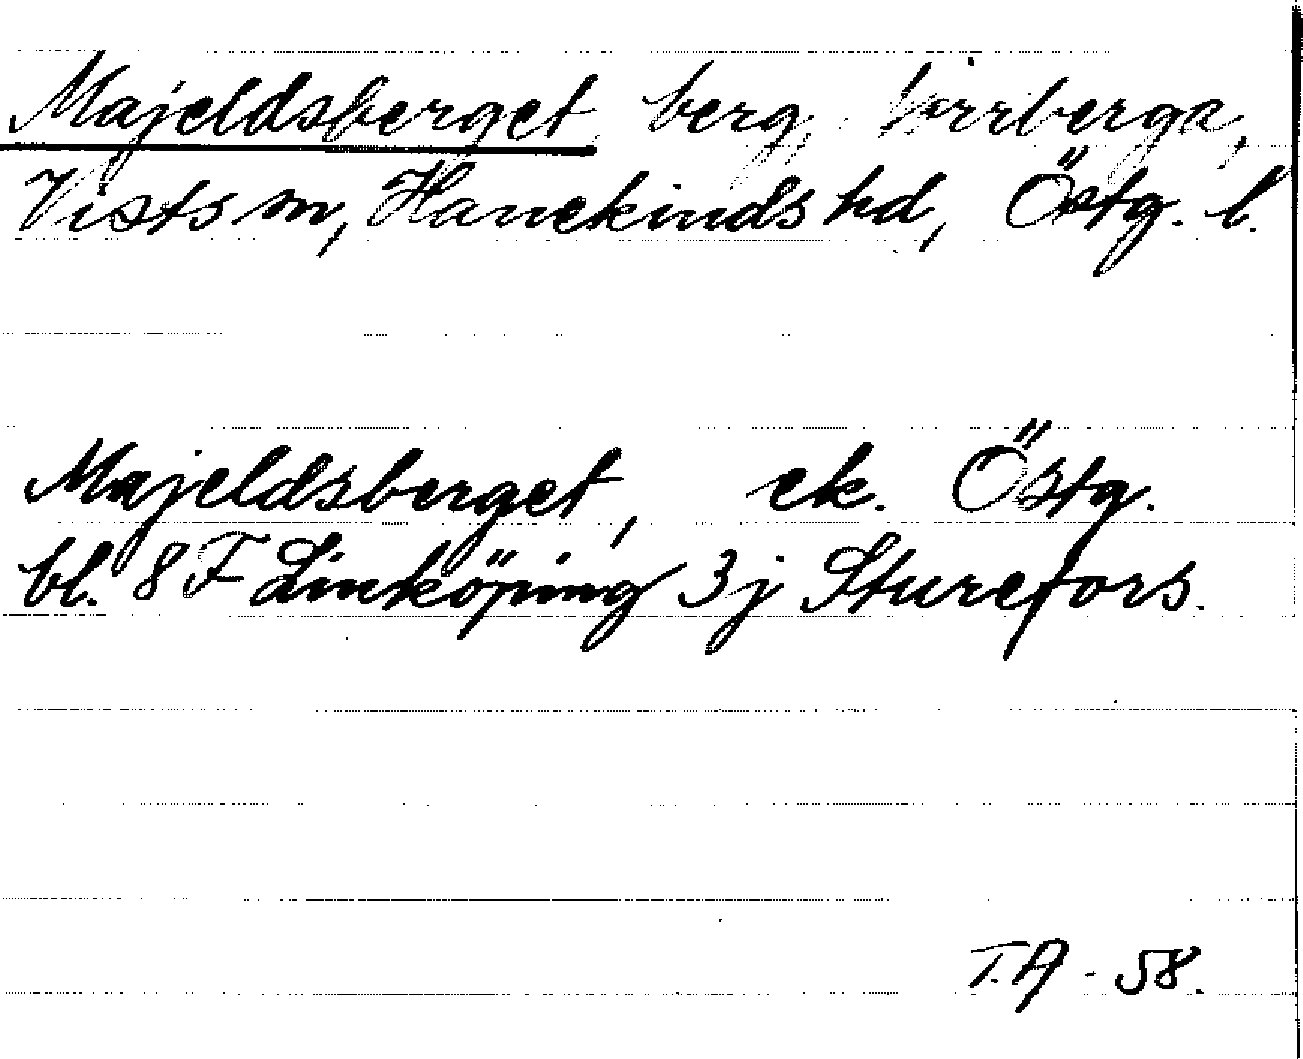 Majeldsberget, berg,
Vists sn, Hanekinds hd, Östg. l.
Majeldsberget, ek. Östg.
bl. 8 F Linköping 3j Sturefors.
T.A - 58.